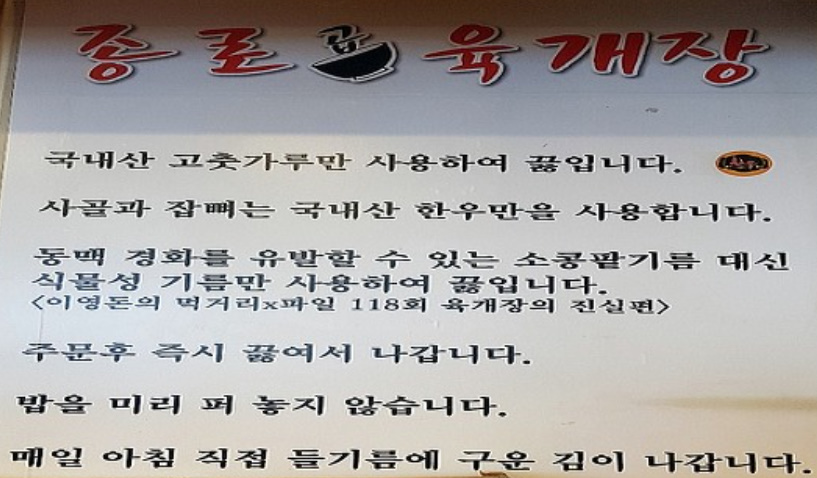 종로 곱 육개장
국내산 고춧가루만 사용하여 끓입니다.
사골과 잡뼈는 국내산 한우만을 사용합니다.
동맥 경화를 유발할 수 있는 소콩팥기름 대신
식물성 기름만 사용하여 끓입니다.
<이영돈의 먹거리x파일 118회 육개장의 진실편>
주문후 즉시 끓여서 나갑니다.
밥을 미리 퍼 놓지 않습니다.
매일 아침 직접 들기름에 구운 김이 나갑니다.